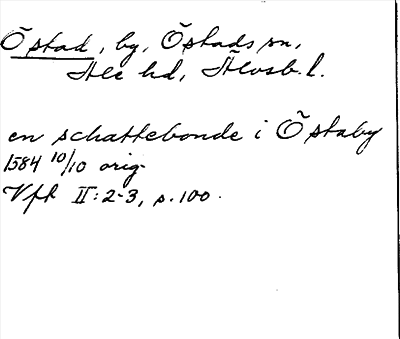 Östad, by, Östads sn,
Ale hd, Älvsb. l.
en schattebonde i Östaby
1584 10/10 orig.
Vfh II: 2-3, s. 100.